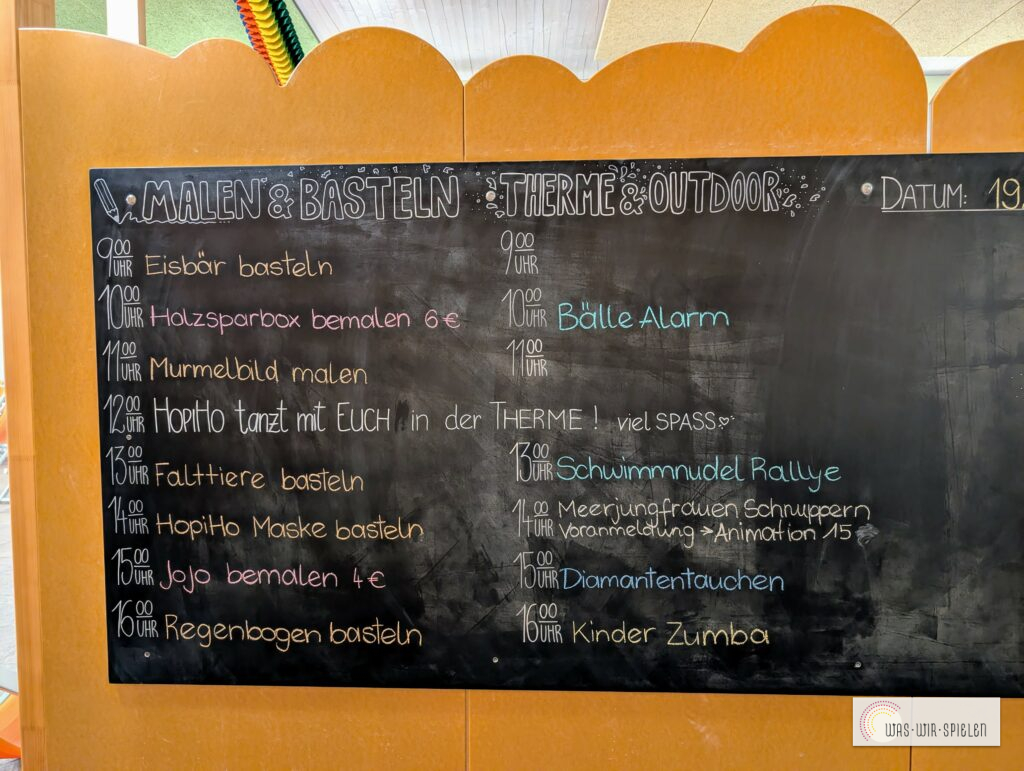 MALEN & BASTELN
9 00 UHR Eisbär basteln
10 00 UHR Holzsparbox bemalen 6€
11 00 UHR Murmelbild malen
12 00 UHR HOPIHO tanzt mit EUCH in der THERME! viel SPASS
13 00 UHR Falttiere basteln
14 00 UHR HopiHo Maske basteln
15 00 UHR Jojo bemalen 4€
16 00 UHR Regenbogen basteln
THERME & OUTDOOR
9 00 UHR
10 00 UHR Bälle Alarm
11 00 UHR
13 00 UHR Schwimmnudel Rallye
14 00 UHR Meerjungfrauen Schnuppern
Voranmeldung → Animation 15
15 00 UHR Diamantentauchen
16 00 UHR Kinder Zumba
DATUM: 19.
WAS-WIR-SPIELEN